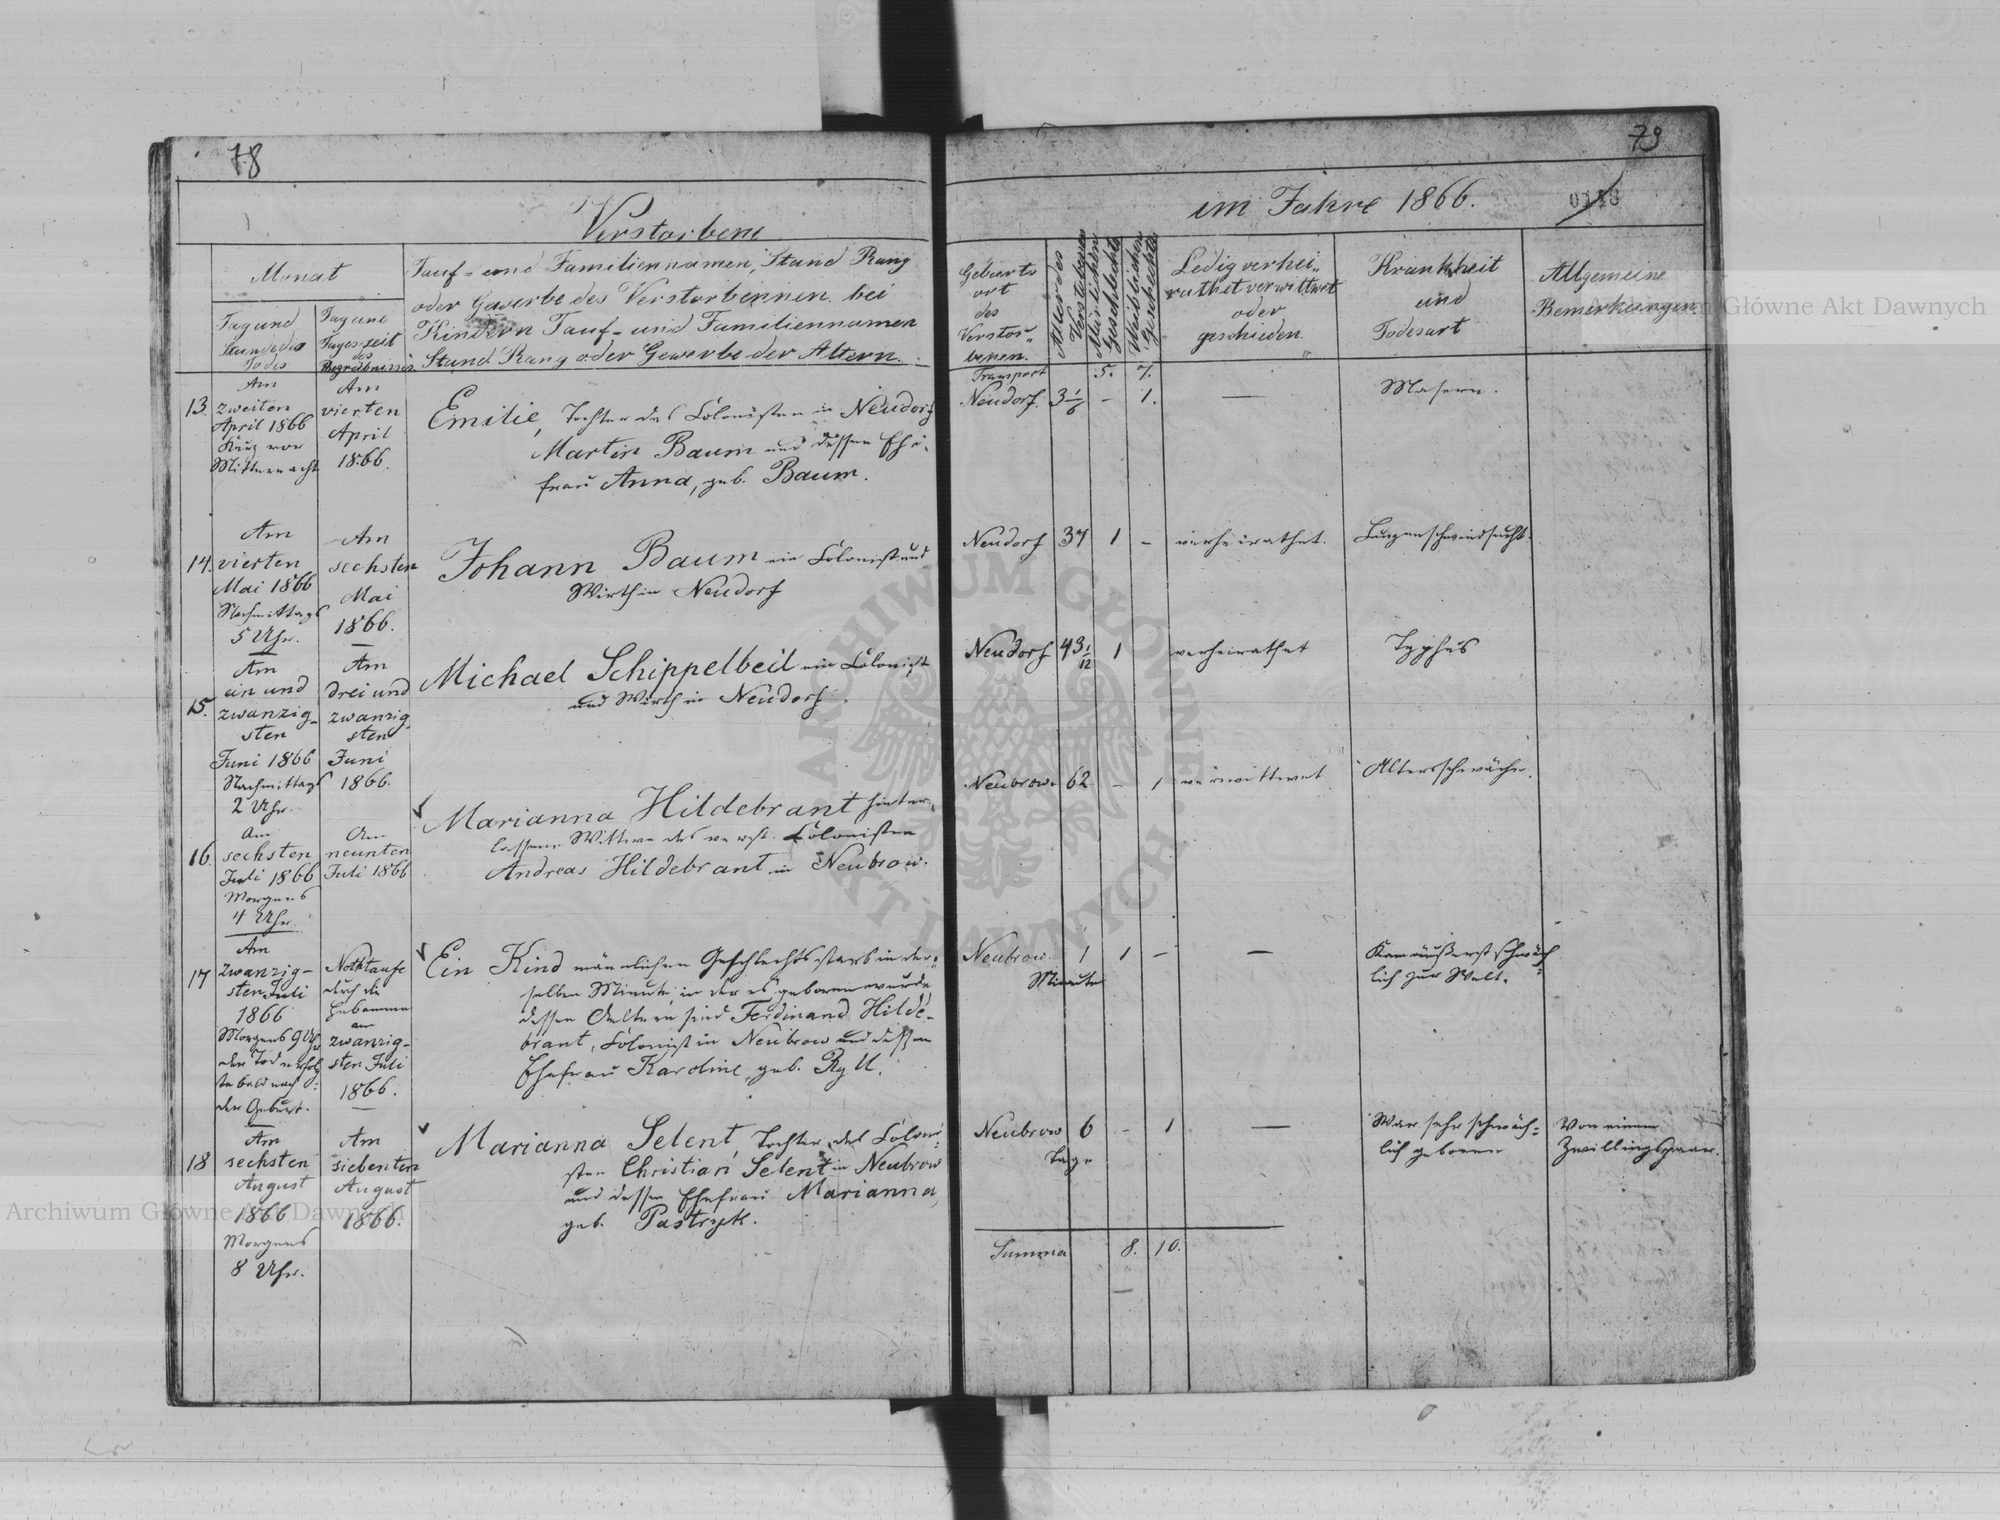 78
Verstorbene
Monat
Tag und
Stunde des
Todes
Tag und
Tageszeit
des
Begräbnisses
Tauf- und Familiennamen, Stand Rang
oder Gewerbe des Verstorbennen. bei
Kindern Tauf- und Familiennamen
Stand Rang oder Gewerbe der Altern.
13.
Am
zweiten
April 1866
Kurz vor
Mitternacht
Am
vierten
April
1866.
Emilie, Tochter des Colonisten in Neudorf
Martin Baum und dessen Ehe-
frau Anna, geb. Baum.
14.
Am
vierten
Mai 1866
Nachmittags
5 Uhr.
Am
sechsten
Mai
1866.
Johann Baum ein Colonist und
Wirth in Neudorf
15.
Am
ein und
zwanzig-
sten
Juni 1866
Nachmittags
2 Uhr.
Am
drei und
zwanzig-
sten
Juni
1866.
Michael Schippelbeil ein Colonist
und Wirth in Neudorf.
16.
Am
sechsten
Juli 1866
Morgens
4 Uhr.
Am
neunten
Juli 1866
Marianna Hildebrant hinter-
lassene Wittwe des verst. Colonisten
Andreas Hildebrant in Neubrow.
17
Am
zwanzig-
sten Juli
1866
Morgens 9 Uhr
der Tod erfolg-
te bald nach
der Geburt.
Nothtaufe
durch die
Hebamme
am
zwanzig-
sten Juli
1866.
Ein Kind männlichen Geschlechts starb in der-
selben Minute in der es geboren wurde,
dessen Aeltern sind Ferdinand Hilde-
brant, Colonist in Neubrow und dessen
Ehefrau Karoline, geb. Ryll.
18
Am
sechsten
August
1866
Morgens
8 Uhr.
Am
siebenten
August
1866.
Marianna Selent, Tochter des Coloni-
sten Christian Selent in Neubrow
und dessen Ehefrau Marianna,
geb. Pastryk.
79
im Jahre 1866.
Geburts
ort
des
Verstor-
benen.
Alter des
Verstorbenen
Männlichen
Geschlechts
Weiblichen
Geschlechts
Ledig verhei-
rathet verwittwet
oder
geschieden.
Krankheit
und
Todesart
Allgemeine
Bemerkungen.
Transport 5. 7.
Neudorf. 3 1/6 - 1. — Masern.
Neudorf 37 1 - verheirathet. Lungenschwindsucht.
Neudorf 43 1/12 1 verheirathet Typhus
Neubrow. 62 - 1 verwittwet Altersschwäche.
Neubrow. 1 1 - — Kam äußerst schwäch-
Minute lich zur Welt.
Neubrow 6 - 1 — War sehr schwäch- Von einem
Tage lich geboren Zwillingspaar.
Summa 8. 10.
ARCHIWUM GŁÓWNE AKT DAWNYCH
Archiwum Główne Akt Dawnych
Archiwum Główne Akt Dawnych